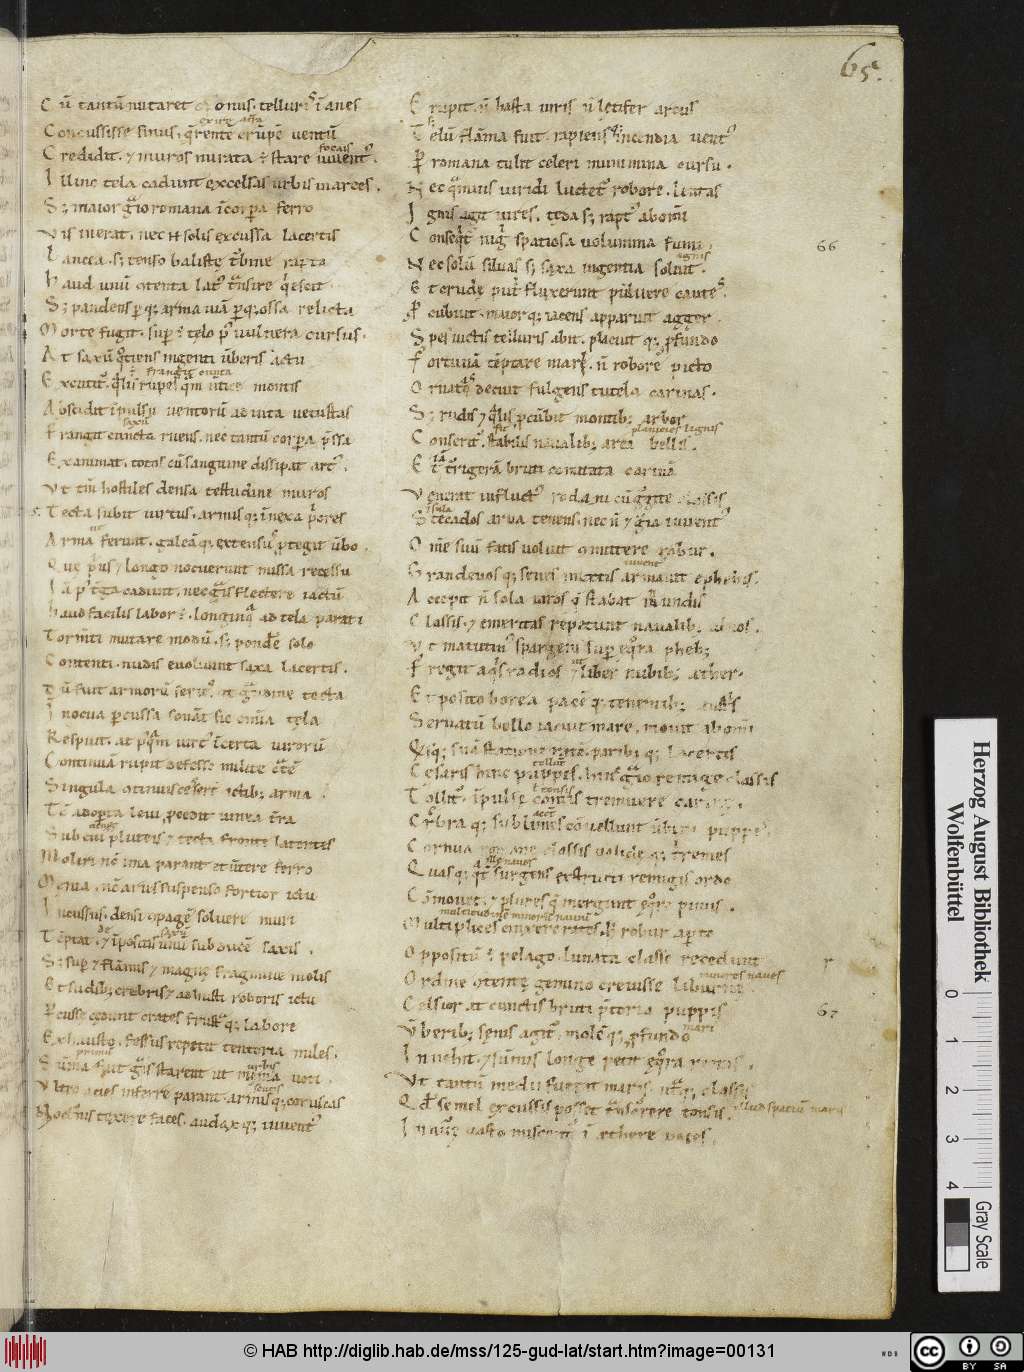 65.
Cū tantū nutaret onus. telluris īanes
exire
Concussisse sinus. q̄rente erūpē ventū
Credidit. ⁊ muros mirata ē stare iuuent᷒.
Illinc tela cadunt excelsas urbis in arces.
S; maior g̃uio romana īcorpa ferro
Vis inerat. nec solis excussa lacertis
Lancea. s; tenso balistę t̄bine rapta
Haud unū ꝯtenta lat᷒ t̄nsire q̇escit
S; pandens p̱q; arma uiā p̱q; ossa relicta
Morte fugit. sup̱ ē telo p᷒ uulnera cursus.
At saxū q̊tiens ingenti ūberis actu
Excutit᷑. q̄lis rupes q̄m montis
Abscidit īpulsu ventorū adiuta uetustas
Frangit cuncta ruens. nec tantū corpa p̄ssa
Exanimat. totos cū sanguine dissipat art᷒.
Vt tm̄ hostiles densa testudine muros
Tecta subit uirtus. armisq; īnexa p̄ores
Arma ferunt. galeāq; extensus p̱tegit ūbo.
Que p̄us ⁊ longo nocuerunt missa recessu
Iā p᷒ t̄ga cadunt. nec g̃is flectere iactū
Haud facilis labor ē. longinq̄ ad tela parati
Torm̄ti mutare modū. s; ponde solo
Contenti. nudis euoluunt saxa lacertis.
Dū fuit armorū series. ut g̃ndine tecta
Inocua p̱cussa sonāt sic om̄ia tela
Respuit. at p᷒q̄m uirt᷒ īcerta uirorū
Continuā rupit defesso milite c̄tē
Singula ꝯtinuis cesser̄t ictib; arma
Tc̄ adop̱ta leui p̱cedit uinea t̄ra
Sub cui᷒ pluteis ⁊ tecta fronte latentes
Moliri nc̄ ima parant et ūtere ferro
Męnia. nc̄ aries suspenso fortior ictu
Incussus. densi ꝯpagē soluere muri
Tēptat. ⁊ īpositis unū subducē saxis.
S; sup̱ ⁊ flāmis ⁊ magnę fragmine molis
Et sudib; crebris ⁊ adusti roboris ictu
P̱cusse cędunt crates frust̄q; labore
Exhausto. fessus repetit tentoria miles.
Sūma fuit g̃is starent ut męnia voti.
Vltro acies inferre parant. armisq; coruscas
Noct᷒nis texere faces. audaxq; iuuent᷒
Erupit. n̄ hasta uiris n̄ letifer arcus
Telū flāma fuit. rapiensq; īncendia vent᷒
P̱ romana tulit celeri munimina cursu.
Nec q̄muis uiridi luctet᷑ robore. lentas
Ignis agit uires. tęda s; rapt᷒ ab om̄i
Conseq̄t᷑ nig̃ spatiosa uolumina fumi
66
Nec solū siluas s; saxa ingentia soluit.
Et crudę put̄ fluxerunt puluere cautes.
P̱cubuit. maiorq; iacens apparuit agger.
Spes uictis telluris abit. placuit q; p̱fundo
Fortunā tēptare maris. n̄ robore picto
Ornatas decuit fulgens tutela carinas.
S; rudis ⁊ q̄lis p̱cūbit montib; arbor
planicies lignis
Conserit᷑. stabilis naualib; area bellis.
Et iā turrigerā bruti comitata carinā
Venerat influct᷒ rodani cū g̃gite classis
Stecados arua tenens. nec n̄ ⁊ g̃ia iuuent᷒
Om̄e suū fatis uoluit ꝯmittere robur.
Grandeuosq; senes mixtis armauit ephebis.
Accepit n̄ sola uiros q̄ stabat īundis
Classis. ⁊ emeritas repetunt naualib; alnos.
Vt matutin᷒ spargens sup̱ eq̄ra phebus
Fregit aq̄s radios ⁊ liber nubib; ęther.
Et posito borea pacēq; tenentib; austris
Seruatū bello iacuit mare. mouit ab om̄i
Qisq; suā statione ratē. parib; q; lacertis
Cesaris hinc puppes. hinc g̃io remige classis
Tollit᷑. īpulsę tonsis tremuere carinę.
Crebra q; sublimis cōuellunt ūbera puppes.
Cornua romane classis ualide q; t̄remes
Quasq; q̄t᷑ surgens exstructi remigis ordo
Cōmouet. ⁊ plures q̄ mergunt eq̄ra pinus.
multitudinē minoris nauiū
Multiplices cinxere rates. h̄ robur ap̱to
Oppositū ē pelago. lunata classe recedunt
minores naues
Ordine ꝯtentę gemino creuisse liburnę
Celsior at cunctis bruti p̄toria puppis
67
mari
Verib; senis agit᷑. molēq; p̱fundo
Inuehit. ⁊ sūmis longe petit eq̄ra remis.
Vt tantū medii fuerat maris. ut̄q; classis
Qd̄ semel excussis posset t̄nscurrere tonsis. illud spatiū maris
Innumerę uasto miscentur ī ęthere uoces.
Herzog August Bibliothek
Wolfenbüttel
0 1 2 3 4
Gray Scale
© HAB http://diglib.hab.de/mss/125-gud-lat/start.htm?image=00131
WDB
cc BY SA